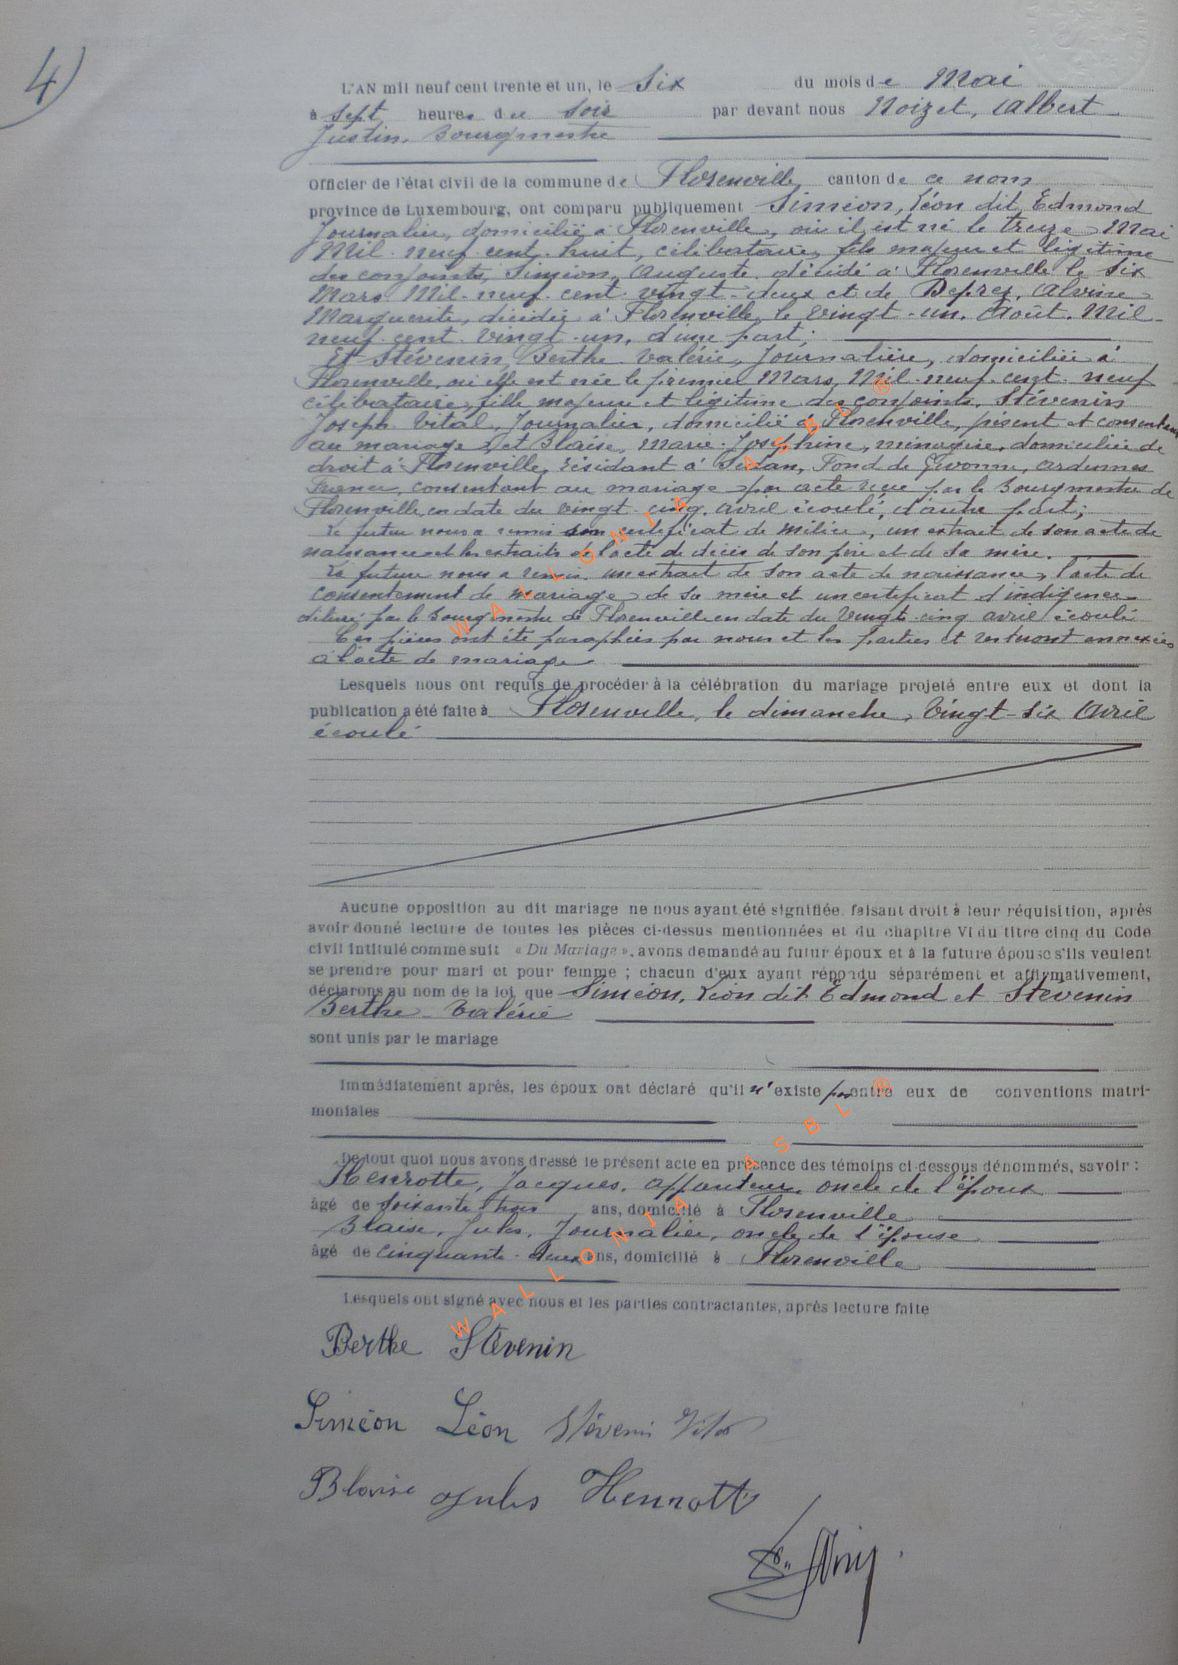 4)
L'AN mil neuf cent trente et un, le Six du mois de Mai
à Sept heures du Soir par devant nous Noizet, Albert
Justin, Bourgmestre
Officier de l'état civil de la commune de Florenville, canton de ce nom
province de Luxembourg, ont comparu publiquement Siméon, Léon dit Edmond
Journalier, domicilié à Florenville, où il est né le treize Mai
Mil neuf cent huit, célibataire, fils majeur et légitime
des conjoints, Siméon, Auguste décédé à Florenville le Six
Mars Mil-neuf-cent-vingt-deux et de Deprez, Alvine
Marguerite, décédée à Florenville le Vingt-un Août Mil-
neuf-cent-vingt-un, d'une part;
Et Stévenin, Berthe Valérie, Journalière, domiciliée à
Florenville, où elle est née le premier Mars Mil-neuf-cent-neuf
célibataire, fille majeure et légitime des conjoints, Stévenin
Joseph Vital, Journalier, domicilié à Florenville, présent et consentant
au mariage, et Blaise, Marie-Joséphine, ménagère, domiciliée de
droit à Florenville, résidant à Sedan, Fond de Givonne, Ardennes
France, consentant au mariage par acte reçu par le Bourgmestre de
Florenville en date du vingt-cinq avril écoulé, d'autre part;
Le futur nous a remis son certificat de milice, un extrait de son acte de
naissance et les extraits de l'acte de décès de son père et de sa mère.
La future nous a remis un extrait de son acte de naissance, l'acte de
consentement de mariage de sa mère et un certificat d'indigence
délivré par le Bourgmestre de Florenville en date du Vingt-cinq avril écoulé
Ces pièces ont été paraphées par nous et les parties et resteront annexées
à l'acte de mariage
Lesquels nous ont requis de procéder à la célébration du mariage projeté entre eux et dont la
publication a été faite à Florenville, le dimanche, Vingt-six Avril
écoulé
Aucune opposition au dit mariage ne nous ayant été signifiée, faisant droit à leur réquisition, après
avoir donné lecture de toutes les pièces ci-dessus mentionnées et du chapitre VI du titre cinq du Code
civil intitulé comme suit « Du Mariage », avons demandé au futur époux et à la future épouse s'ils veulent
se prendre pour mari et pour femme ; chacun d'eux ayant répondu séparément et affirmativement,
déclarons au nom de la loi que Siméon, Léon dit Edmond et Stévenin
Berthe-Valérie
sont unis par le mariage
Immédiatement après, les époux ont déclaré qu'il n'existe pas entre eux de conventions matri-
moniales
De tout quoi nous avons dressé le présent acte en présence des témoins ci-dessous dénommés, savoir :
Henrotte, Jacques, appariteur, oncle de l'époux
âgé de soixante trois ans, domicilié à Florenville
Blaise, Jules, Journalier, oncle de l'épouse
âgé de cinquante-deux ans, domicilié à Florenville
Lesquels ont signé avec nous et les parties contractantes, après lecture faite
Berthe Stévenin
Siméon Léon Stévenin Vital
Blaise Jules Henrotte
WALLONIA ASBL ®
WALLONIA ASBL ®